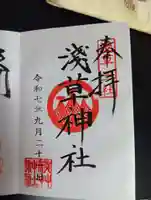 奉拝
淺草神社
令和七年九月二十